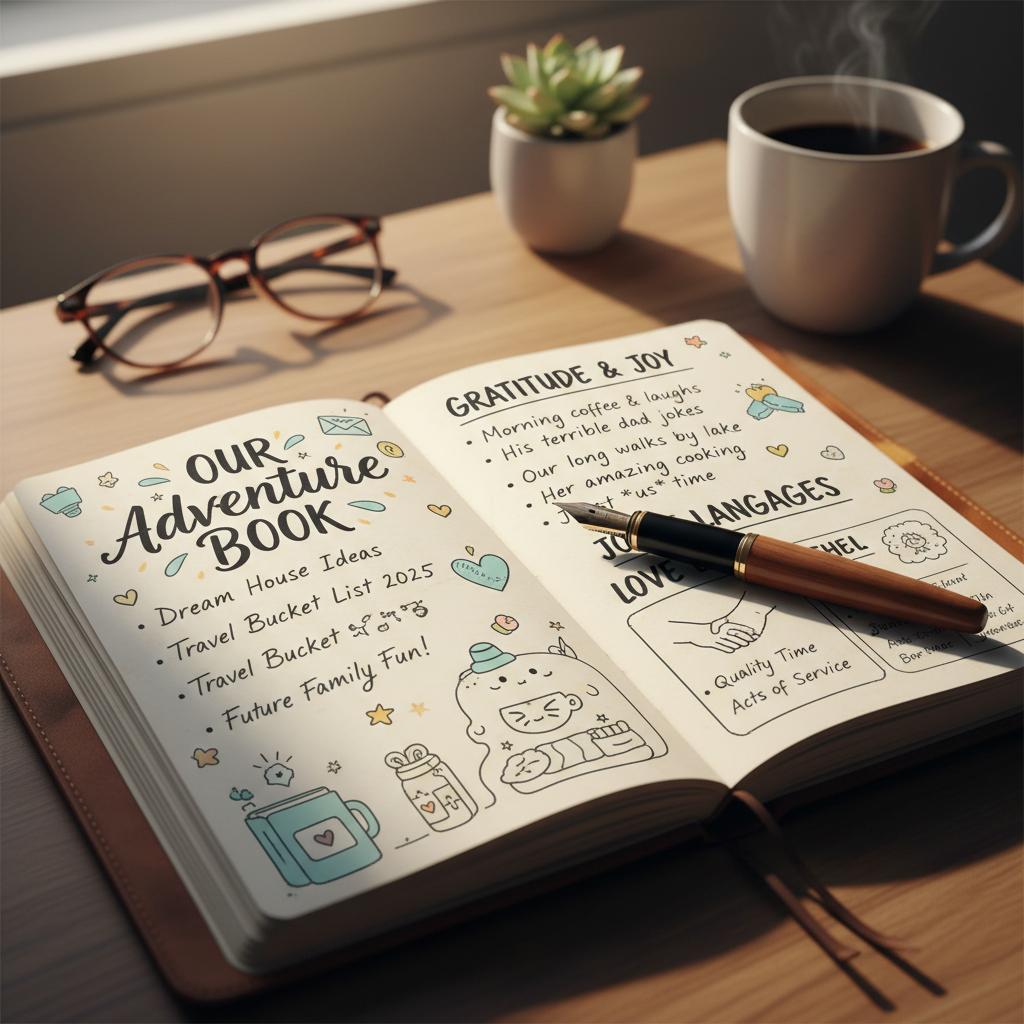 OUR
Adventure
BOOK
• Dream House Ideas
• Travel Bucket List 2025
• Travel Bucket
• Future Family Fun!
GRATITUDE & JOY
• Morning coffee & laughs
• His terrible dad jokes
• Our long walks by lake
• Her amazing cooking
• *us* time
LANGAGES
LOVE
• Quality Time
Acts of Service